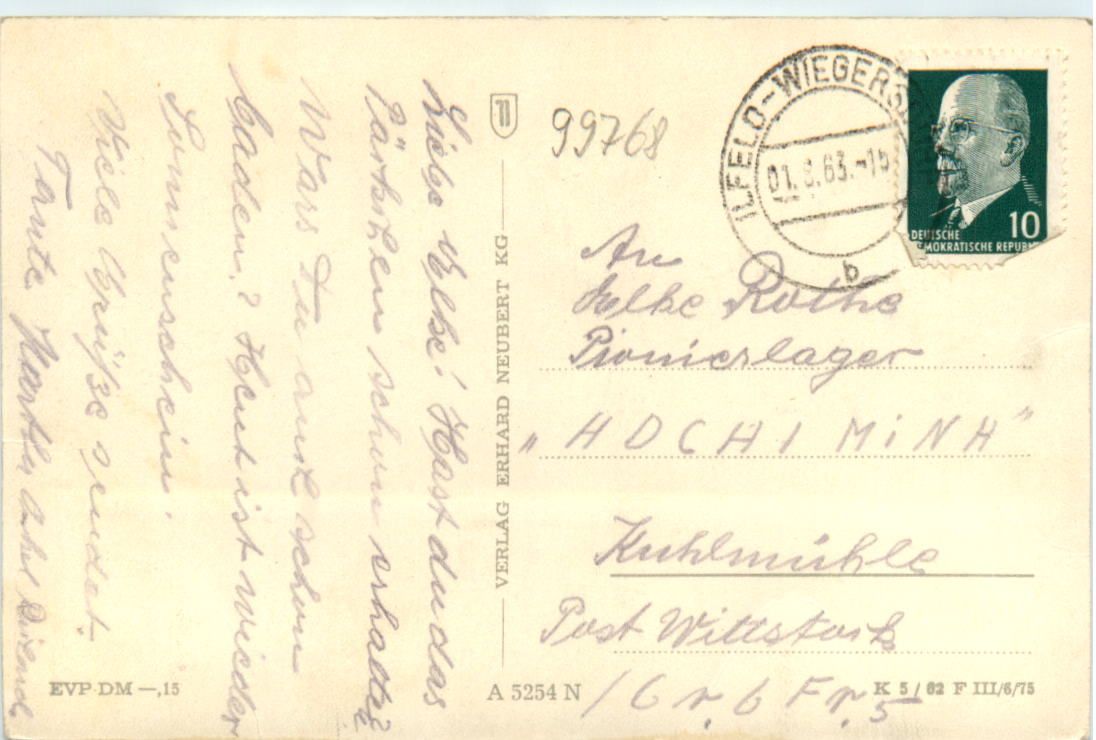 Liebe Elke! Hast du das
Päckchen schon erhalten?
Wars Du auch schon
baden? Heut ist wieder
Sonnenschein.
Viele Grüße sendet
Tante Martha
99768
ILFELD-WIEGERS
01. 8. 63.-15
b
10
DEUTSCHE
DEMOKRATISCHE REPUBLIK
An
Elke Rothe
Pionierlager
„HOCHI MiNH"
Kuhlmühle
Post Wittstock
/Gr. 6 Fr. 5
VERLAG ERHARD NEUBERT KG
EVP DM —,15
A 5254 N
K 5/62 F III/6/75